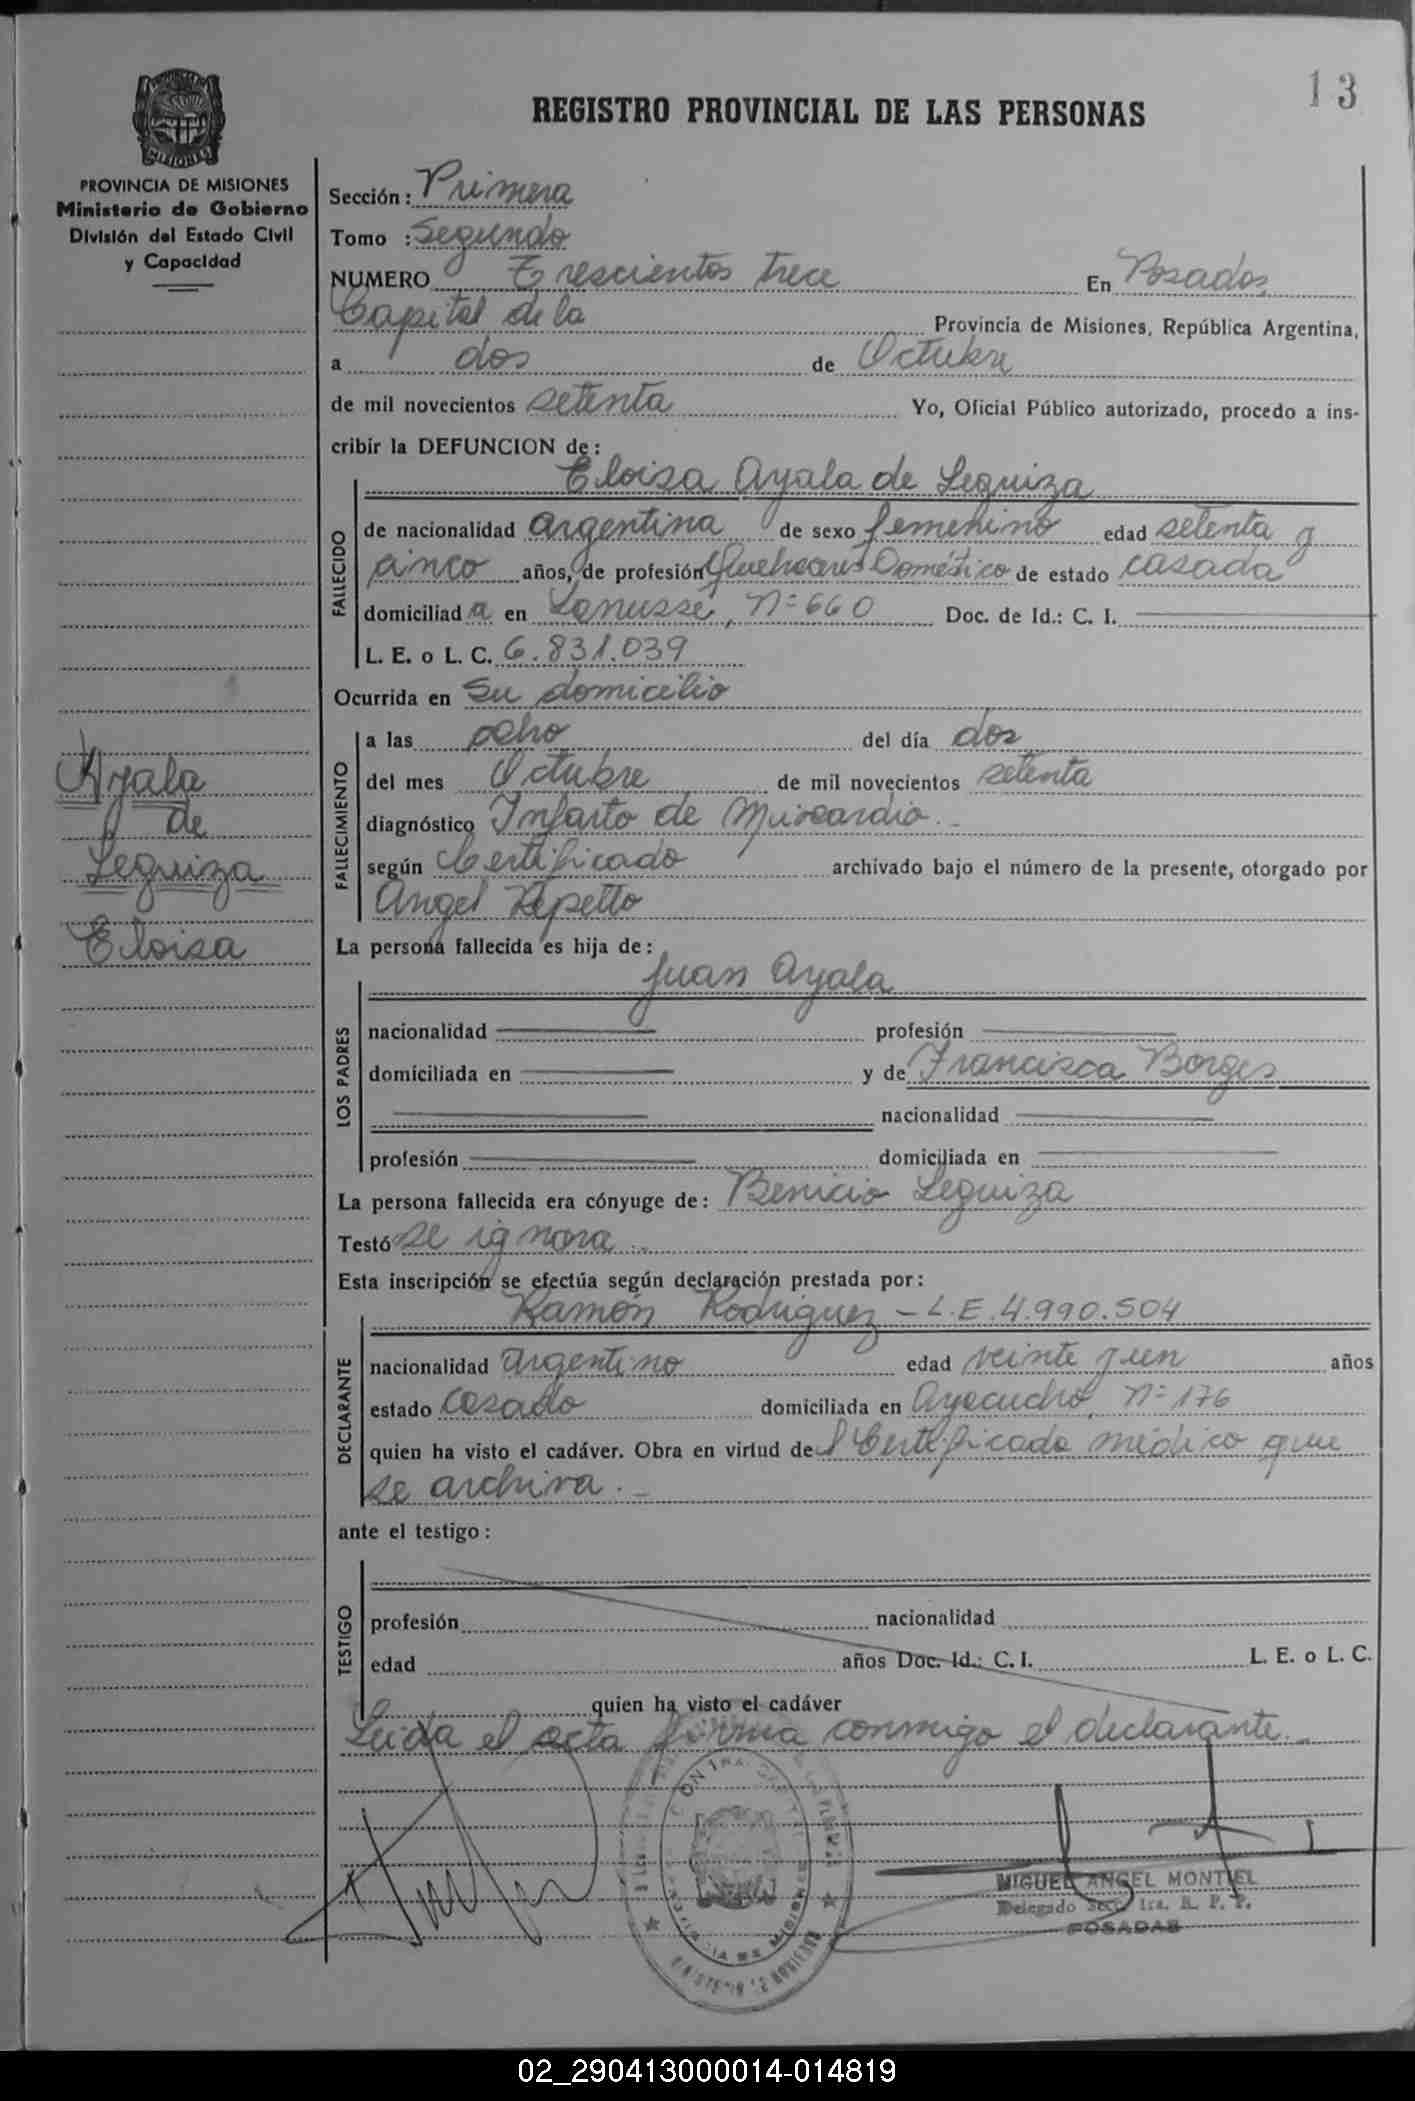 13
REGISTRO PROVINCIAL DE LAS PERSONAS
PROVINCIA DE MISIONES
Ministerio de Gobierno
División del Estado Civil
y Capacidad
Ayala
de
Leguiza
Eloisa
Sección: Primera
Tomo : Segundo
NUMERO Trescientos trece En Posadas
Capital de la Provincia de Misiones, República Argentina,
a dos de Octubre
de mil novecientos setenta Yo, Oficial Público autorizado, procedo a ins-
cribir la DEFUNCION de:
Eloisa Ayala de Leguiza
FALLECIDO
de nacionalidad argentina de sexo femenino edad setenta y
cinco años, de profesión Quehaceres Doméstico de estado casada
domiciliad a en Lanusse, Nº 660 Doc. de Id.: C. I.
L. E. o L. C. 6.831.039
Ocurrida en su domicilio
FALLECIMIENTO
a las ocho del día dos
del mes Octubre de mil novecientos setenta
diagnóstico Infarto de Miocardio.-
según Certificado archivado bajo el número de la presente, otorgado por
Angel Repetto
La persona fallecida es hija de:
Juan Ayala
LOS PADRES
nacionalidad profesión
domiciliada en y de Francisca Borges
nacionalidad
profesión domiciliada en
La persona fallecida era cónyuge de: Benicio Leguiza
Testó se ignora.-
Esta inscripción se efectúa según declaración prestada por:
Ramón Rodriguez - L.E. 4.990.504
DECLARANTE
nacionalidad argentino edad veinte y un años
estado casado domiciliada en Ayacucho, Nº 176
quien ha visto el cadáver. Obra en virtud del Certificado médico que
se archiva.-
ante el testigo:
TESTIGO
profesión nacionalidad
edad años Doc. Id.: C. I. L. E. o L. C.
quien ha visto el cadáver
Leida el acta firma conmigo el declarante.-
MIGUEL ANGEL MONTIEL
Delegado Secc. 1ra. R. P. P.
POSADAS
02_290413000014-014819